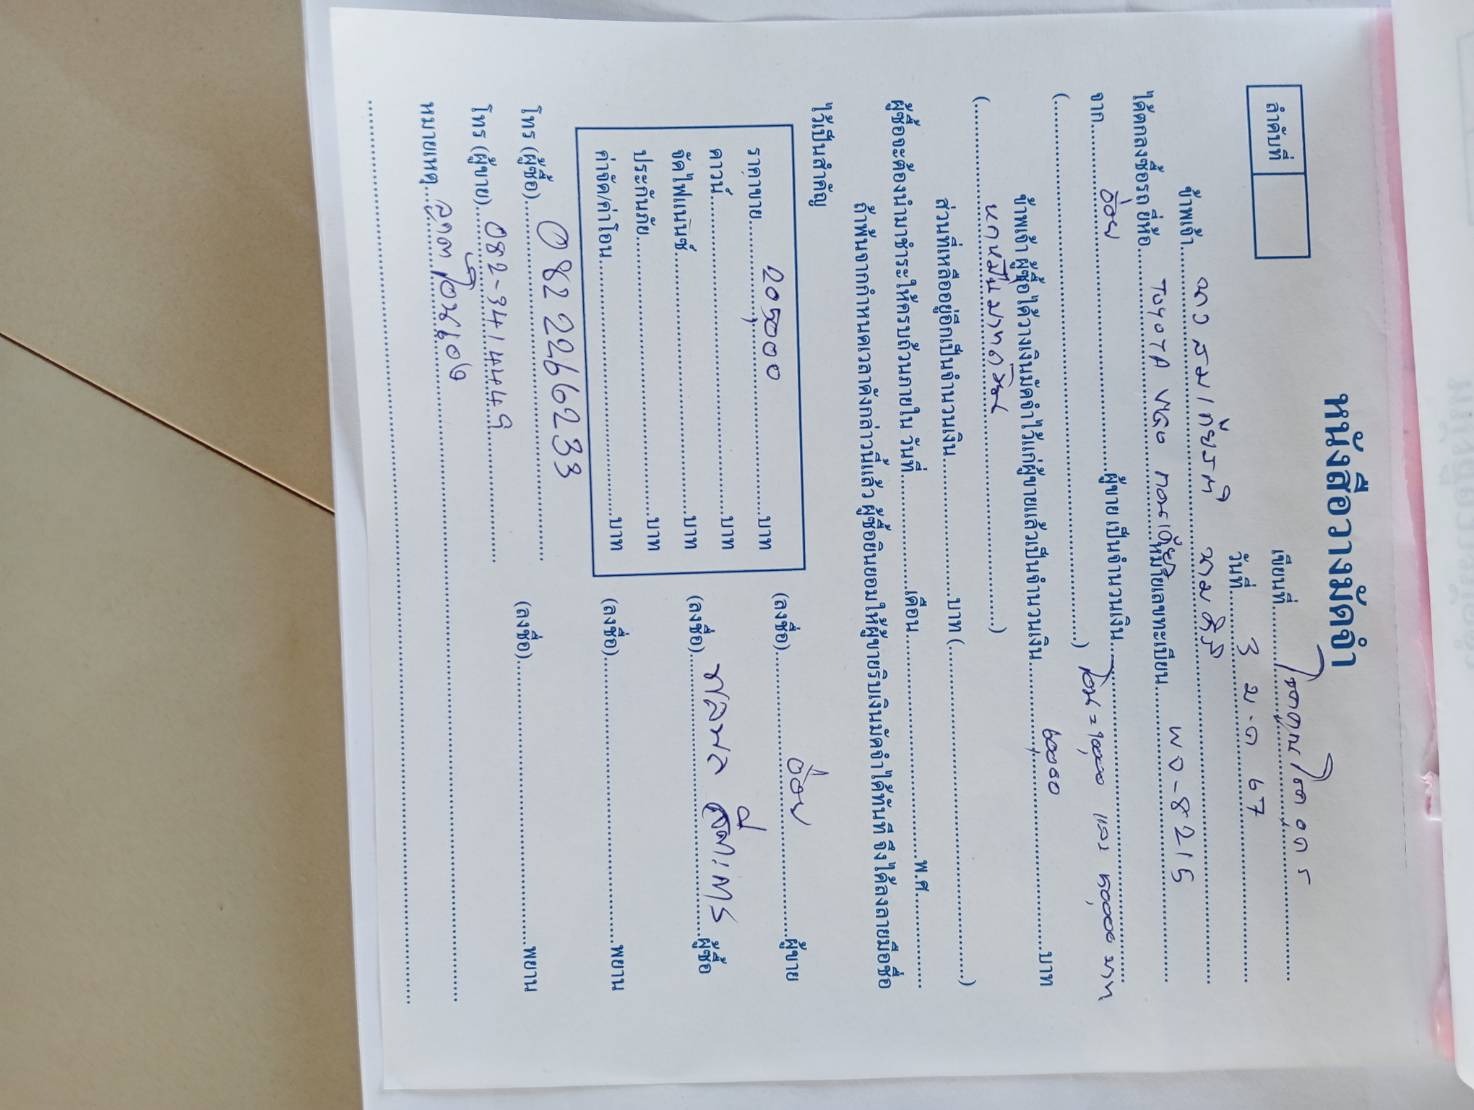 ลำดับที่
หนังสือวางมัดจำ
เขียนที่
วันที่ 3 ม.ค 67
ข้าพเจ้า นาว สมเกียรติ
ได้ตกลงซื้อรถ ยี่ห้อ TOYOTA VIGO ตอนเดียว หมายเลขทะเบียน พว-8215
จาก อ้อย ผู้ขาย เป็นจำนวนเงิน
(..........)
ข้าพเจ้า ผู้ซื้อได้วางเงินมัดจำไว้แก่ผู้ขายแล้วเป็นจำนวนเงิน 60000 บาท
(หกหมื่นบาทถ้วน)
ส่วนที่เหลืออยู่อีกเป็นจำนวนเงิน..........บาท (..........)
ผู้ซื้อจะต้องนำมาชำระให้ครบถ้วนภายใน วันที่..........เดือน..........พ.ศ...........
ถ้าพ้นจากกำหนดเวลาดังกล่าวนี้แล้ว ผู้ซื้อยินยอมให้ผู้ขายริบเงินมัดจำได้ทันที จึงได้ลงลายมือชื่อ
ไว้เป็นสำคัญ
ราคาขาย 205000 บาท
ดาวน์..........บาท
จัดไฟแนนซ์..........บาท
ประกันภัย..........บาท
ค่าจัด/ค่าโอน..........บาท
(ลงชื่อ) อ้อย ผู้ขาย
(ลงชื่อ)..........ผู้ซื้อ
(ลงชื่อ)..........พยาน
(ลงชื่อ)..........พยาน
โทร (ผู้ซื้อ) 082 2266233
โทร (ผู้ขาย) 082-3414449
หมายเหตุ ลูกค้าโอนเอง